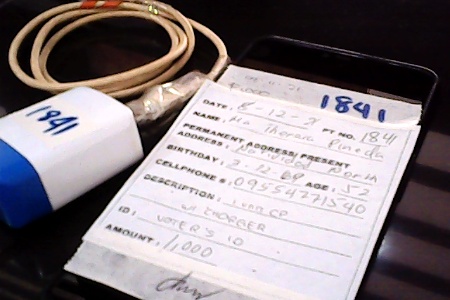 1841
1841
DATE: 8-12-21
NAME: Ma Theresa Pineda PT NO. 1841
PERMANENT ADDRESS/PRESENT
ADDRESS: North
BIRTHDAY: 2-12-69 AGE: 52
CELLPHONE #: 09554771540
DESCRIPTION: CP
W/ CHARGER
ID: VOTER'S ID
AMOUNT: 1,000